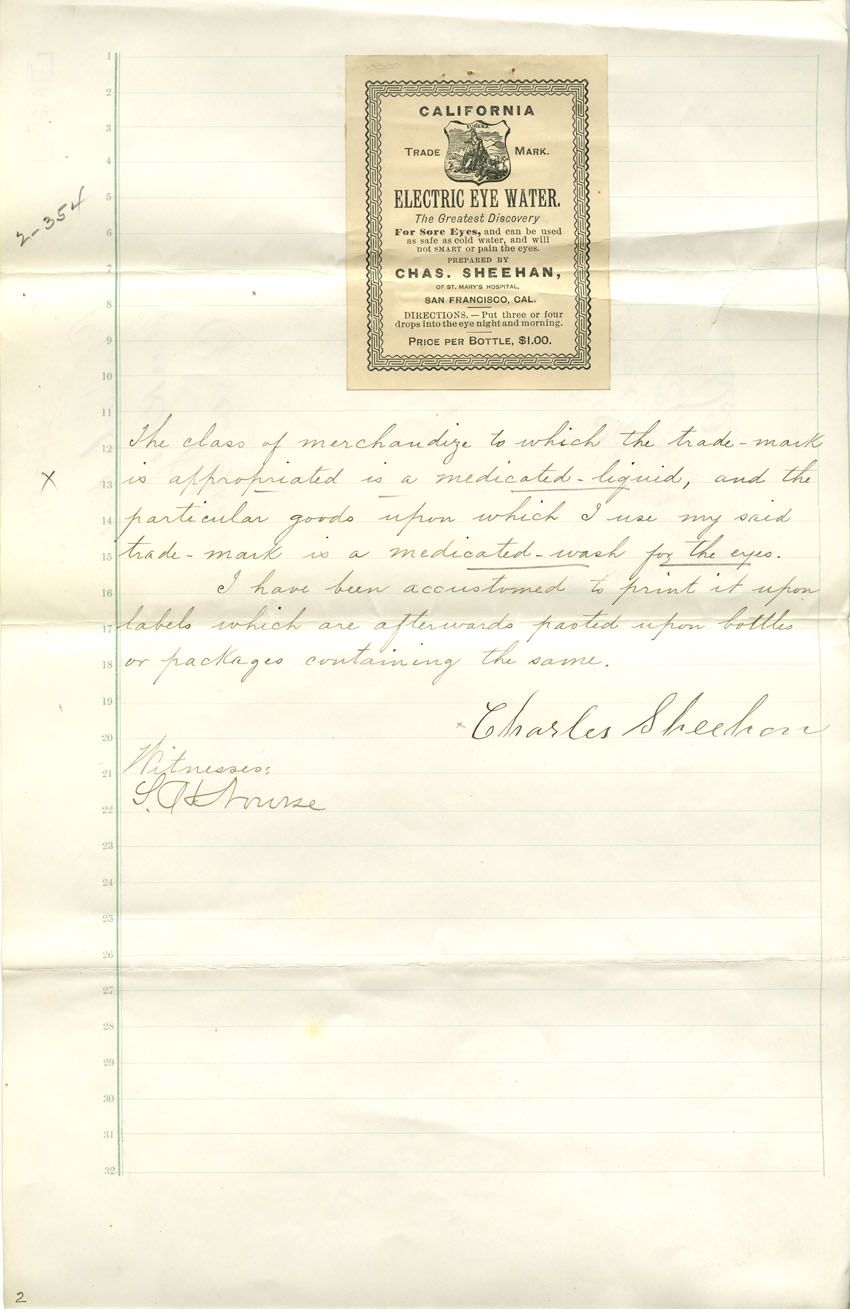 CALIFORNIA
TRADE MARK.
ELECTRIC EYE WATER.
The Greatest Discovery
For Sore Eyes, and can be used
as safe as cold water, and will
not SMART or pain the eyes.
PREPARED BY
CHAS. SHEEHAN,
OF ST. MARY'S HOSPITAL,
SAN FRANCISCO, CAL.
DIRECTIONS.—Put three or four
drops into the eye night and morning.
PRICE PER BOTTLE, $1.00.
2-354
1
2
3
4
5
6
7
8
9
10
11
12 The class of merchandize to which the trade-mark
X 13 is appropriated is a medicated-liquid, and the
14 particular goods upon which I use my said
15 trade-mark is a medicated-wash for the eyes.
16 I have been accustomed to print it upon
17 labels which are afterwards pasted upon bottles
18 or packages containing the same.
19
x Charles Sheehan
20
Witnesses:
21
S. H. Nourse
22
23
24
25
26
27
28
29
30
31
32
2